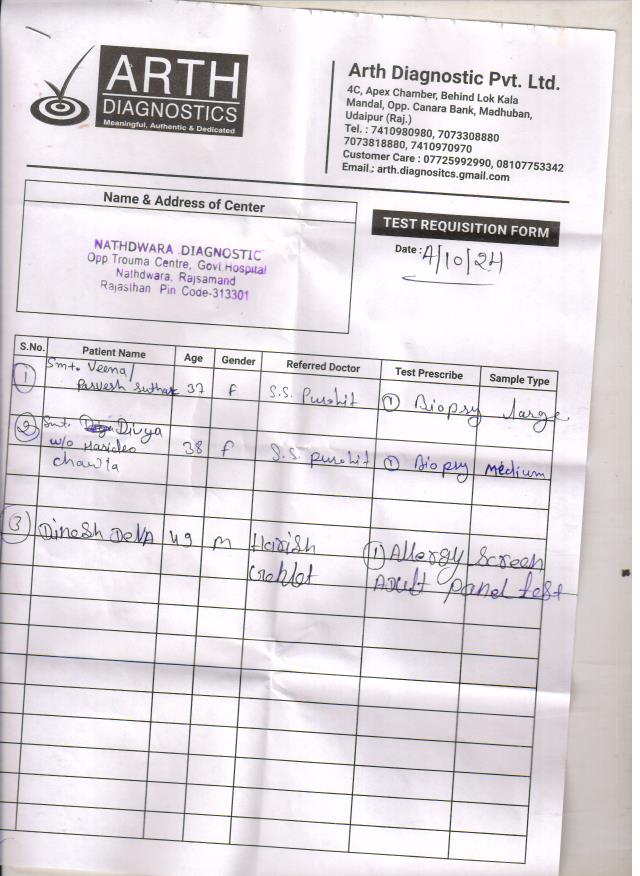 ARTH
DIAGNOSTICS
Meaningful, Authentic & Dedicated
Arth Diagnostic Pvt. Ltd.
4C, Apex Chamber, Behind Lok Kala
Mandal, Opp. Canara Bank, Madhuban,
Udaipur (Raj.)
Tel. : 7410980980, 7073308880
7073818880, 7410970970
Customer Care : 07725992990, 08107753342
Email.: arth.diagnositcs.gmail.com
Name & Address of Center
NATHDWARA DIAGNOSTIC
Opp Trouma Centre, Govt.Hospital
Nathdwara, Rajsamand
Rajasthan Pin Code-313301
TEST REQUISITION FORM
Date : 4/10/24
S.No. Patient Name Age Gender Referred Doctor Test Prescribe Sample Type
1 Smt. Veena/
Parvesh Suthar 37 F S.S. Purohit 1 Biopsy large
2 Smt. Divya
w/o Harideo 38 F S.S. purohit 1 Biopsy Medium
chawla
3 Dinesh Deva 49 M Harish 1 Allergy screen
Adult panel test